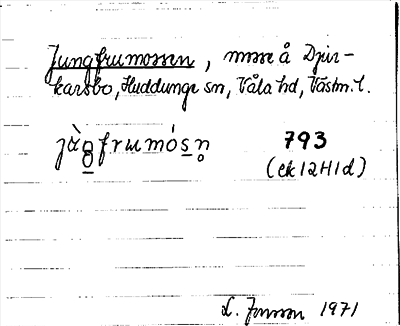 Jungfrumossen, mosse å Djur-
karsbo, Huddunge sn, Våla hd, Västm. l.
793
(ek 12H1d)
L. Jonsson 1971